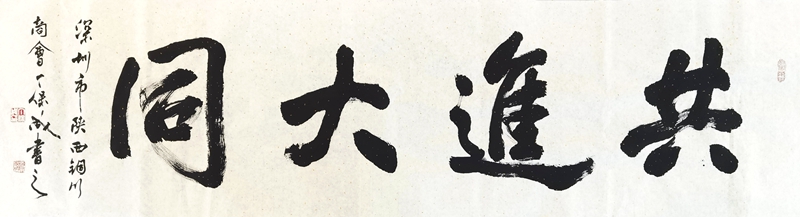 共進大同
深圳市陝西銅川
商會丁保成書之